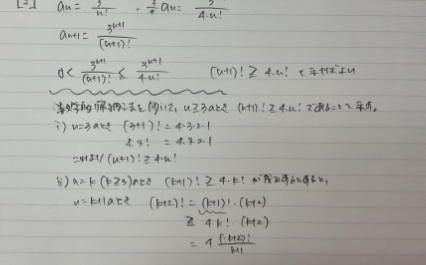 [2] aₙ = 3ⁿ/n! , 3/4 aₙ = 3ⁿ⁺¹/4·n!
aₙ₊₁ = 3ⁿ⁺¹/(n+1)!
0 < 3ⁿ⁺¹/(n+1)! ≤ 3ⁿ⁺¹/4·n! (n+1)! ≥ 4·n! を示せばよい
数学的帰納法を用いて, n≥3のとき (n+1)! ≥ 4·n! であることを示す.
i) n=3のとき (3+1)! = 4·3·2·1
4·3! = 4·3·2·1
(n+1)! ≥ 4·n!
ii) n=k (k≥3)のとき (k+1)! ≥ 4·k! が成立すると
n=k+1のとき (k+2)! = (k+1)!·(k+2)
≥ 4·k!·(k+2)
= 4 (k+2)!/k+1